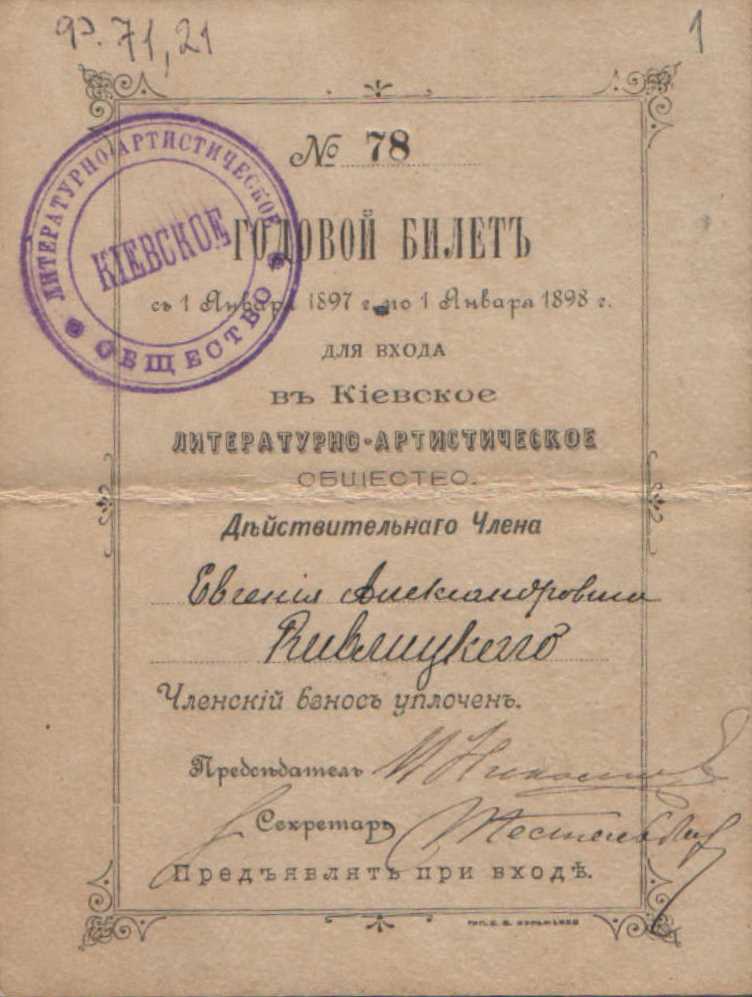 ф. 71, 21
1
№ 78
ЛИТЕРАТУРНО-АРТИСТИЧЕСКОЕ
КІЕВСКОЕ
ОБЩЕСТВО
ГОДОВОЙ БИЛЕТЪ
съ 1 Января 1897 г. по 1 Января 1898 г.
ДЛЯ ВХОДА
въ Кіевское
ЛИТЕРАТУРНО-АРТИСТИЧЕСКОЕ
ОБЩЕСТВО.
Дѣйствительнаго Члена
Евгенія Александровича
Кивлицкаго
Членскій взносъ уплоченъ.
Предсѣдатель
Секретарь
Предъявлять при входѣ.